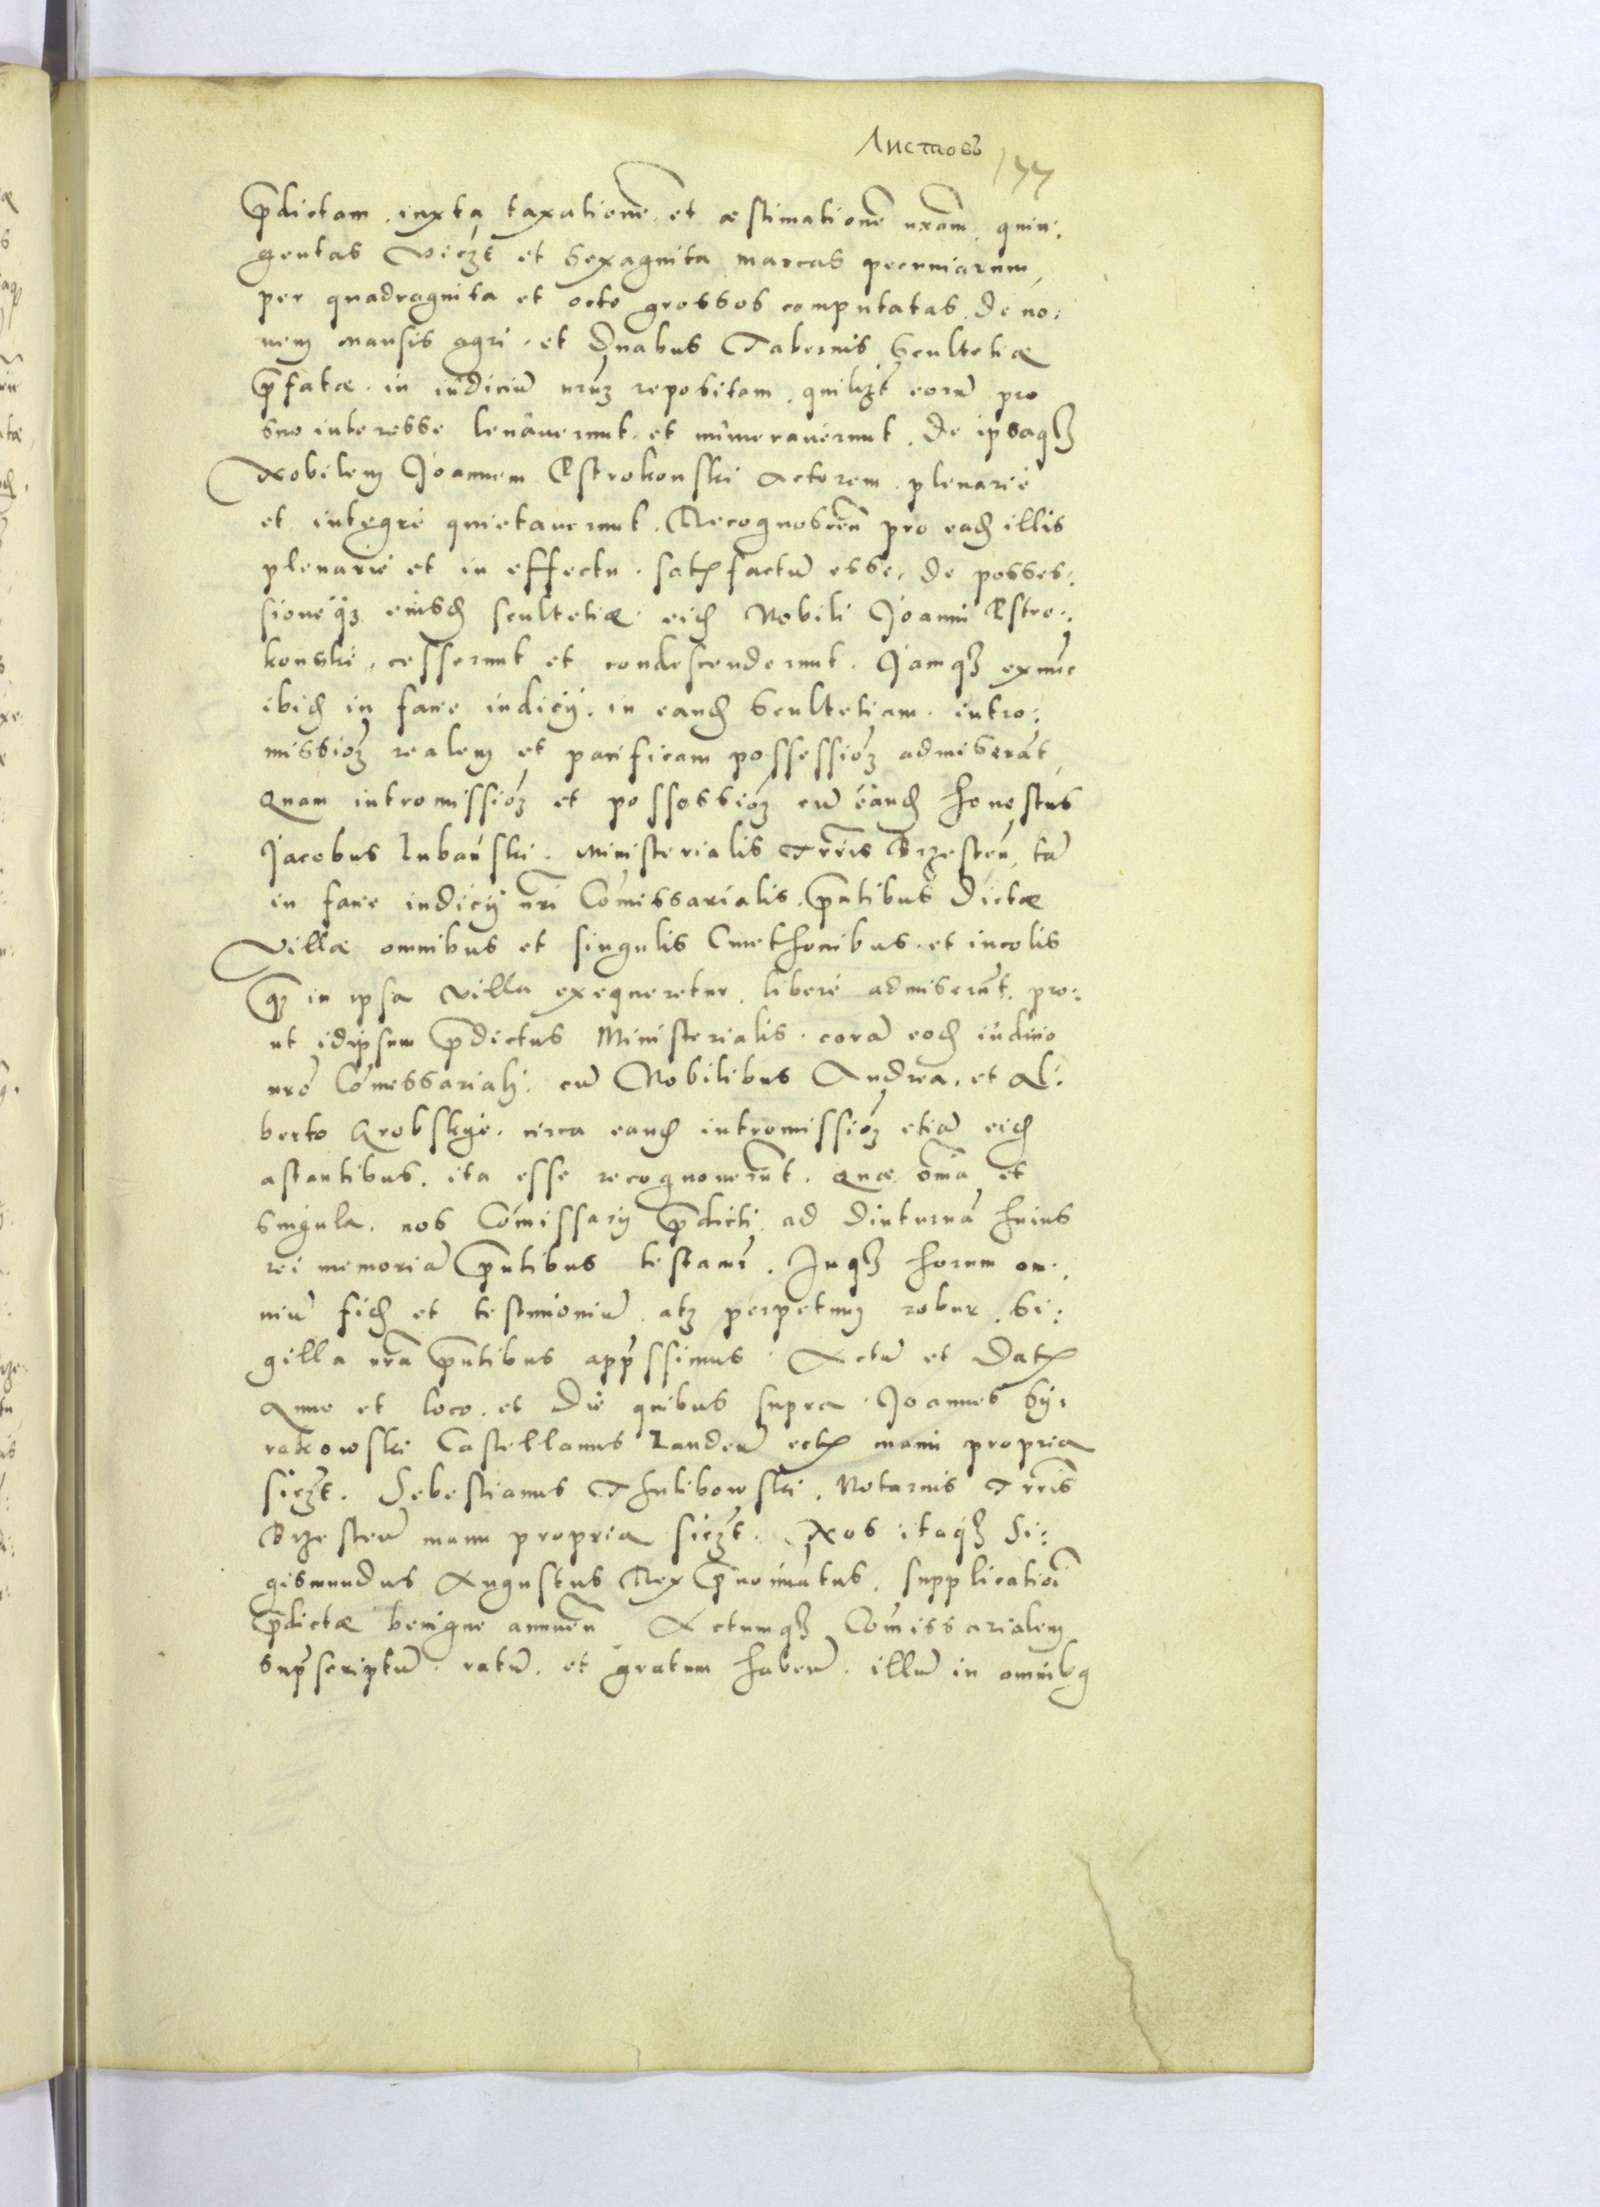 Листовъ 177
p̄dictam iuxta taxationē et æstimationē nr̄am quin:
gentas viczt et sexaginta marcas pecuniarum
per quadraginta et octo grossos computatas. de no:
uem mansis agri et duabus Tabernis Scultetiæ
p̄fatæ in iudiciū nrūz repositam, quilizt eorū pro
suo interesse leuauerunt et numerauerunt. De ipsaqz
Nobilem Joannem Ostrokonski Actorem plenarie
et integre quietauerunt. Recognoscen̄ pro ead illis
plenarie et in effectu satisfactū esse, de posses:
sioneqz eiusd scultetiæ eid Nobili Joanni Ostro:
konski, cesserunt et condescenderunt. Jamqz exnūc
ibid in facie iudicÿ in eand Scultetiam intro:
missioz realem et pacificam possessioz admiserāt
Quam intromissioz et possessioz cū eand honestus
Jacobus Lubański Ministerialis Trr̄is Brzesteń, tā
in facie iudicÿ nr̄i Com̄issarialis, p̄ntibus dictæ
Villæ omnibus et singulis Cmethonibus et incolis
q̄ in ipsa villa exequeretur, libere admiserūt, pro:
ut idipsum p̄dictus Ministerialis corā eod iudicio
nr̄o Com̄essariali, cū Nobilibus Andrea, et Al:
berto Grobskye circa eand intromissioz etiā eid
astantibus, ita esse recognouerūt. Quæ om̄ia et
singula nos Com̄issarÿ p̄dicti ad diuturnā huius
rei memoriā p̄ntibus testamr. Inqz horum om:
niū fid et testimoniū atz perpetuum robur, si:
gilla nr̄a p̄ntibus app̄ssimus. Actū et Dat
Anno et loco et die quibus supra. Joannes Sÿ:
rakowski Castellanus Landeń ect manu propria
sczt. Sebestianus Thulibowski, Notarius Trr̄is
Brzesteń manu propria sczt. Nos itaqz Si:
gismundus Augustus Rex p̄noīatus, supplicationi
p̄dictæ benigne annuen̄ Actumqz Com̄issarialem
sup̄scriptū ratū et gratum haben̄ illū in omnibq